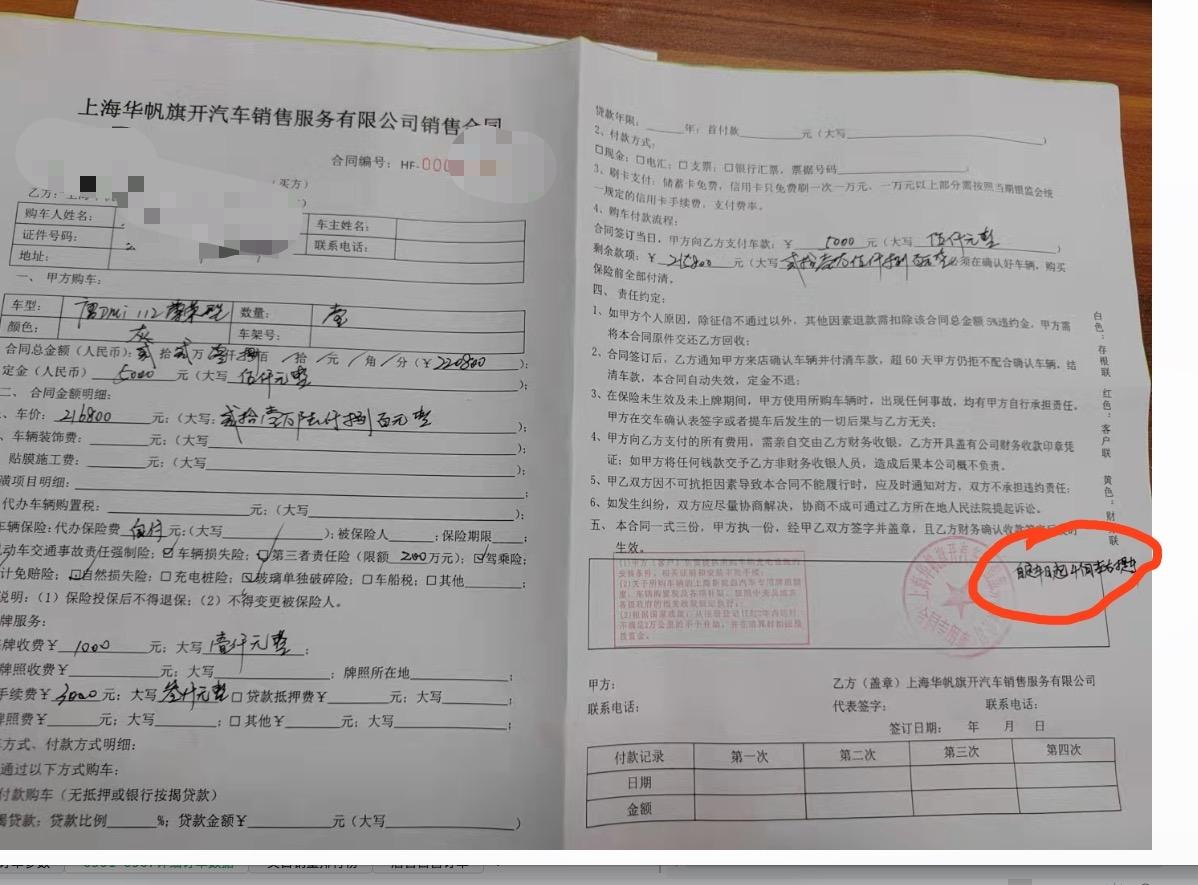 上海华帆旗开汽车销售服务有限公司销售合同
合同编号：HF-000
（买方）
乙方：上海
购车人姓名：
车主姓名：
证件号码：
联系电话：
地址：
一、 甲方购车：
车型：
数量： 壹
颜色： 灰
车架号：
合同总金额（人民币）：贰 拾 贰 万 仟 捌 佰 / 拾 / 元 / 角 / 分（￥220800 ）；
定金（人民币） 5000 元（大写 伍仟元整 ）；
二、 合同金额明细：
、车价：216800 元：（大写：贰拾壹万陆仟捌百元整 ）；
、车辆装饰费： 元；（大写 ）；
贴膜施工费： 元；（大写 ）；
潢项目明细： ；
代办车辆购置税： 元；（大写 ）；
车辆保险：代办保险费 元（大写 ）；被保险人 ；保险期限 ；
动车交通事故责任强制险；☑车辆损失险；☑第三者责任险（限额 200 万元）；☑驾乘险；
计免赔险；☐自然损失险；☐充电桩险；☑玻璃单独破碎险；☐车船税；☐其他 ；
说明：（1）保险投保后不得退保；（2）不得变更被保险人。
牌服务：
牌收费￥ 1000 元；大写 壹仟元整 ；
牌照收费￥ 元；大写 ；牌照所在地 ；
手续费￥ 3000 元；大写 叁仟元整 ☐贷款抵押费￥ 元；大写 ；
牌照费￥ 元；大写 ；☐其他￥ 元；大写 ；
方式、付款方式明细：
通过以下方式购车：
付款购车（无抵押或银行按揭贷款）
揭贷款：贷款比例 %；贷款金额￥ 元（大写 ）
贷款年限： 年；首付款 元（大写 ）
2、付款方式：
☐现金；☐电汇；☐支票；☐银行汇票，票据号码 。
3、刷卡支付：储蓄卡免费，信用卡只免费刷一次一万元，一万元以上部分需按照当期银监会统
一规定的信用卡手续费，支付费率。
4、购车付款流程：
合同签订当日，甲方向乙方支付车款：￥ 5000 元（大写 伍仟元整 ）
剩余款项：￥ 215800 元（大写 贰拾壹万伍仟捌百元整 必须在确认好车辆，购买
保险前全部付清。
四、责任约定：
1、如甲方个人原因，除征信不通过以外，其他因素退款需扣除该合同总金额5%违约金，甲方需
将本合同原件交还乙方回收；
2、合同签订后，乙方通知甲方来店确认车辆并付清车款，超60天甲方仍拒不配合确认车辆，结
清车款，本合同自动失效，定金不退；
3、在保险未生效及未上牌期间，甲方使用所购车辆时，出现任何事故，均有甲方自行承担责任，
甲方在交车确认表签字或者提车后发生的一切后果与乙方无关；
4、甲方向乙方支付的所有费用，需亲自交由乙方财务收银，乙方开具盖有公司财务收款印章凭
证；如甲方将任何钱款交予乙方非财务收银人员，造成后果本公司概不负责。
5、甲乙双方因不可抗拒因素导致本合同不能履行时，应及时通知对方，双方不承担违约责任；
6、如发生纠纷，双方应尽量协商解决，协商不成可通过乙方所在地人民法院提起诉讼。
五、本合同一式三份，甲方执一份，经甲乙双方签字并盖章，且乙方财务确认收款
生效。
白色：存根联 红色：客户联 黄色：财 联
甲方：
乙方（盖章）上海华帆旗开汽车销售服务有限公司
联系电话：
代表签字： 联系电话：
签订日期： 年 月 日
付款记录 第一次 第二次 第三次 第四次
日期
金额